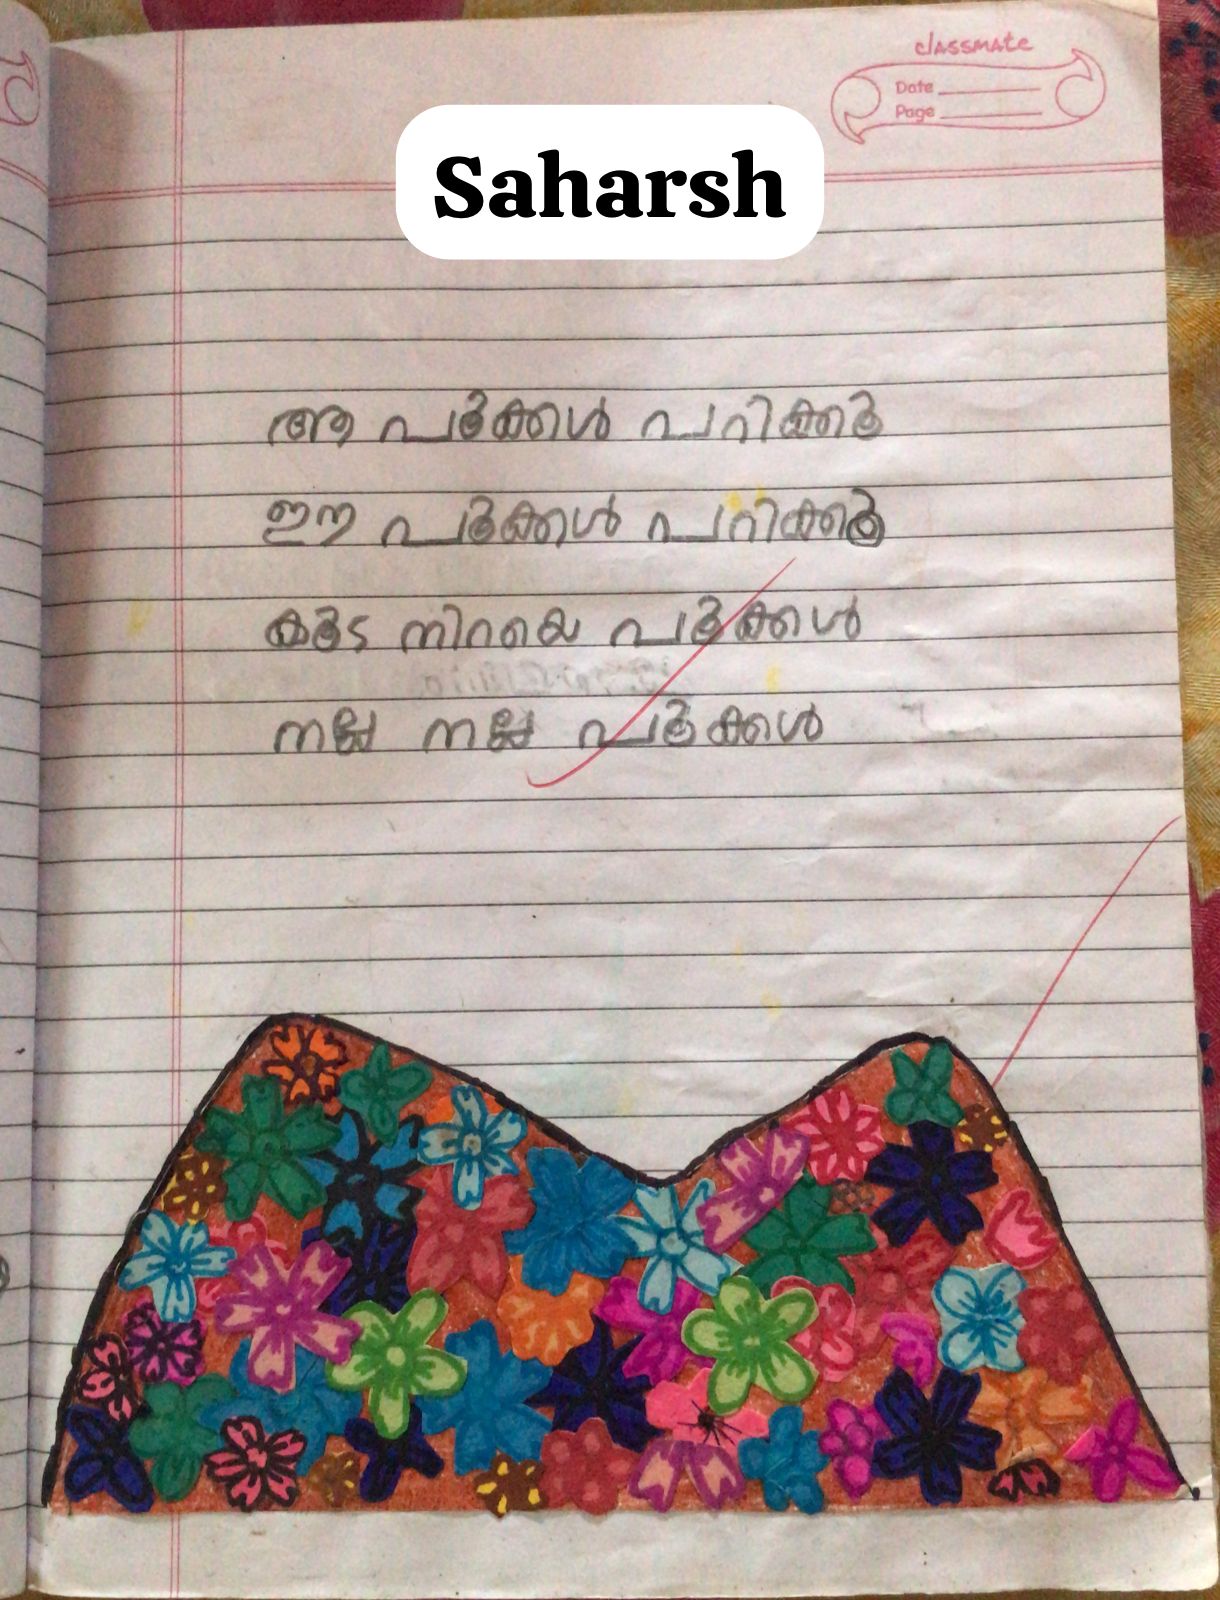 classmate
Date
Page
Saharsh
ആ പൂക്കൾ പറിക്കൂ
ഈ പൂക്കൾ പറിക്കൂ
കൂട നിറയെ പൂക്കൾ
നല്ല നല്ല പൂക്കൾ